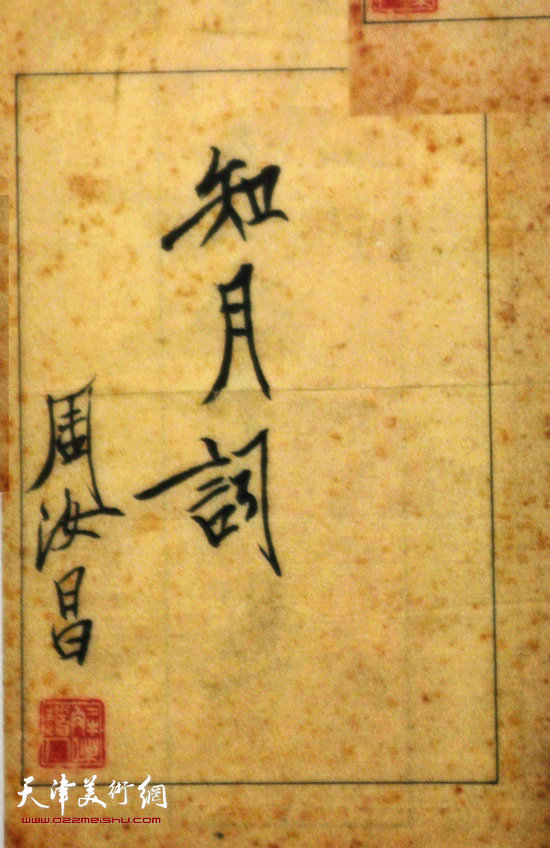 知月詞
周汝昌
天津美術網
www.022meishu.com